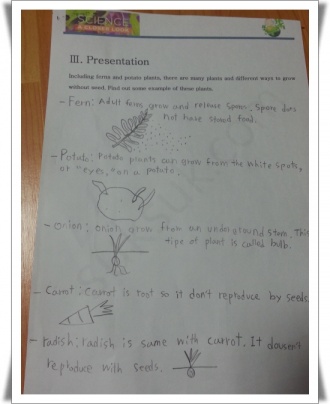 SCIENCE
A CLOSER LOOK
III. Presentation
Including ferns and potato plants, there are many plants and different ways to grow
without seed. Find out some example of these plants.
- Fern: Adult ferns grow and release spores. Spore does
not have stored food.
- Potato: Potato plants can grow from the white spots,
or "eyes," on a potato.
- Onion: Onion grow from an underground stem. This
tipe of plant is called bulb.
- Carrot: Carrot is root so it don't reproduce by seeds.
- radish: radish is same with carrot. It dousen't
reproduce with seeds.